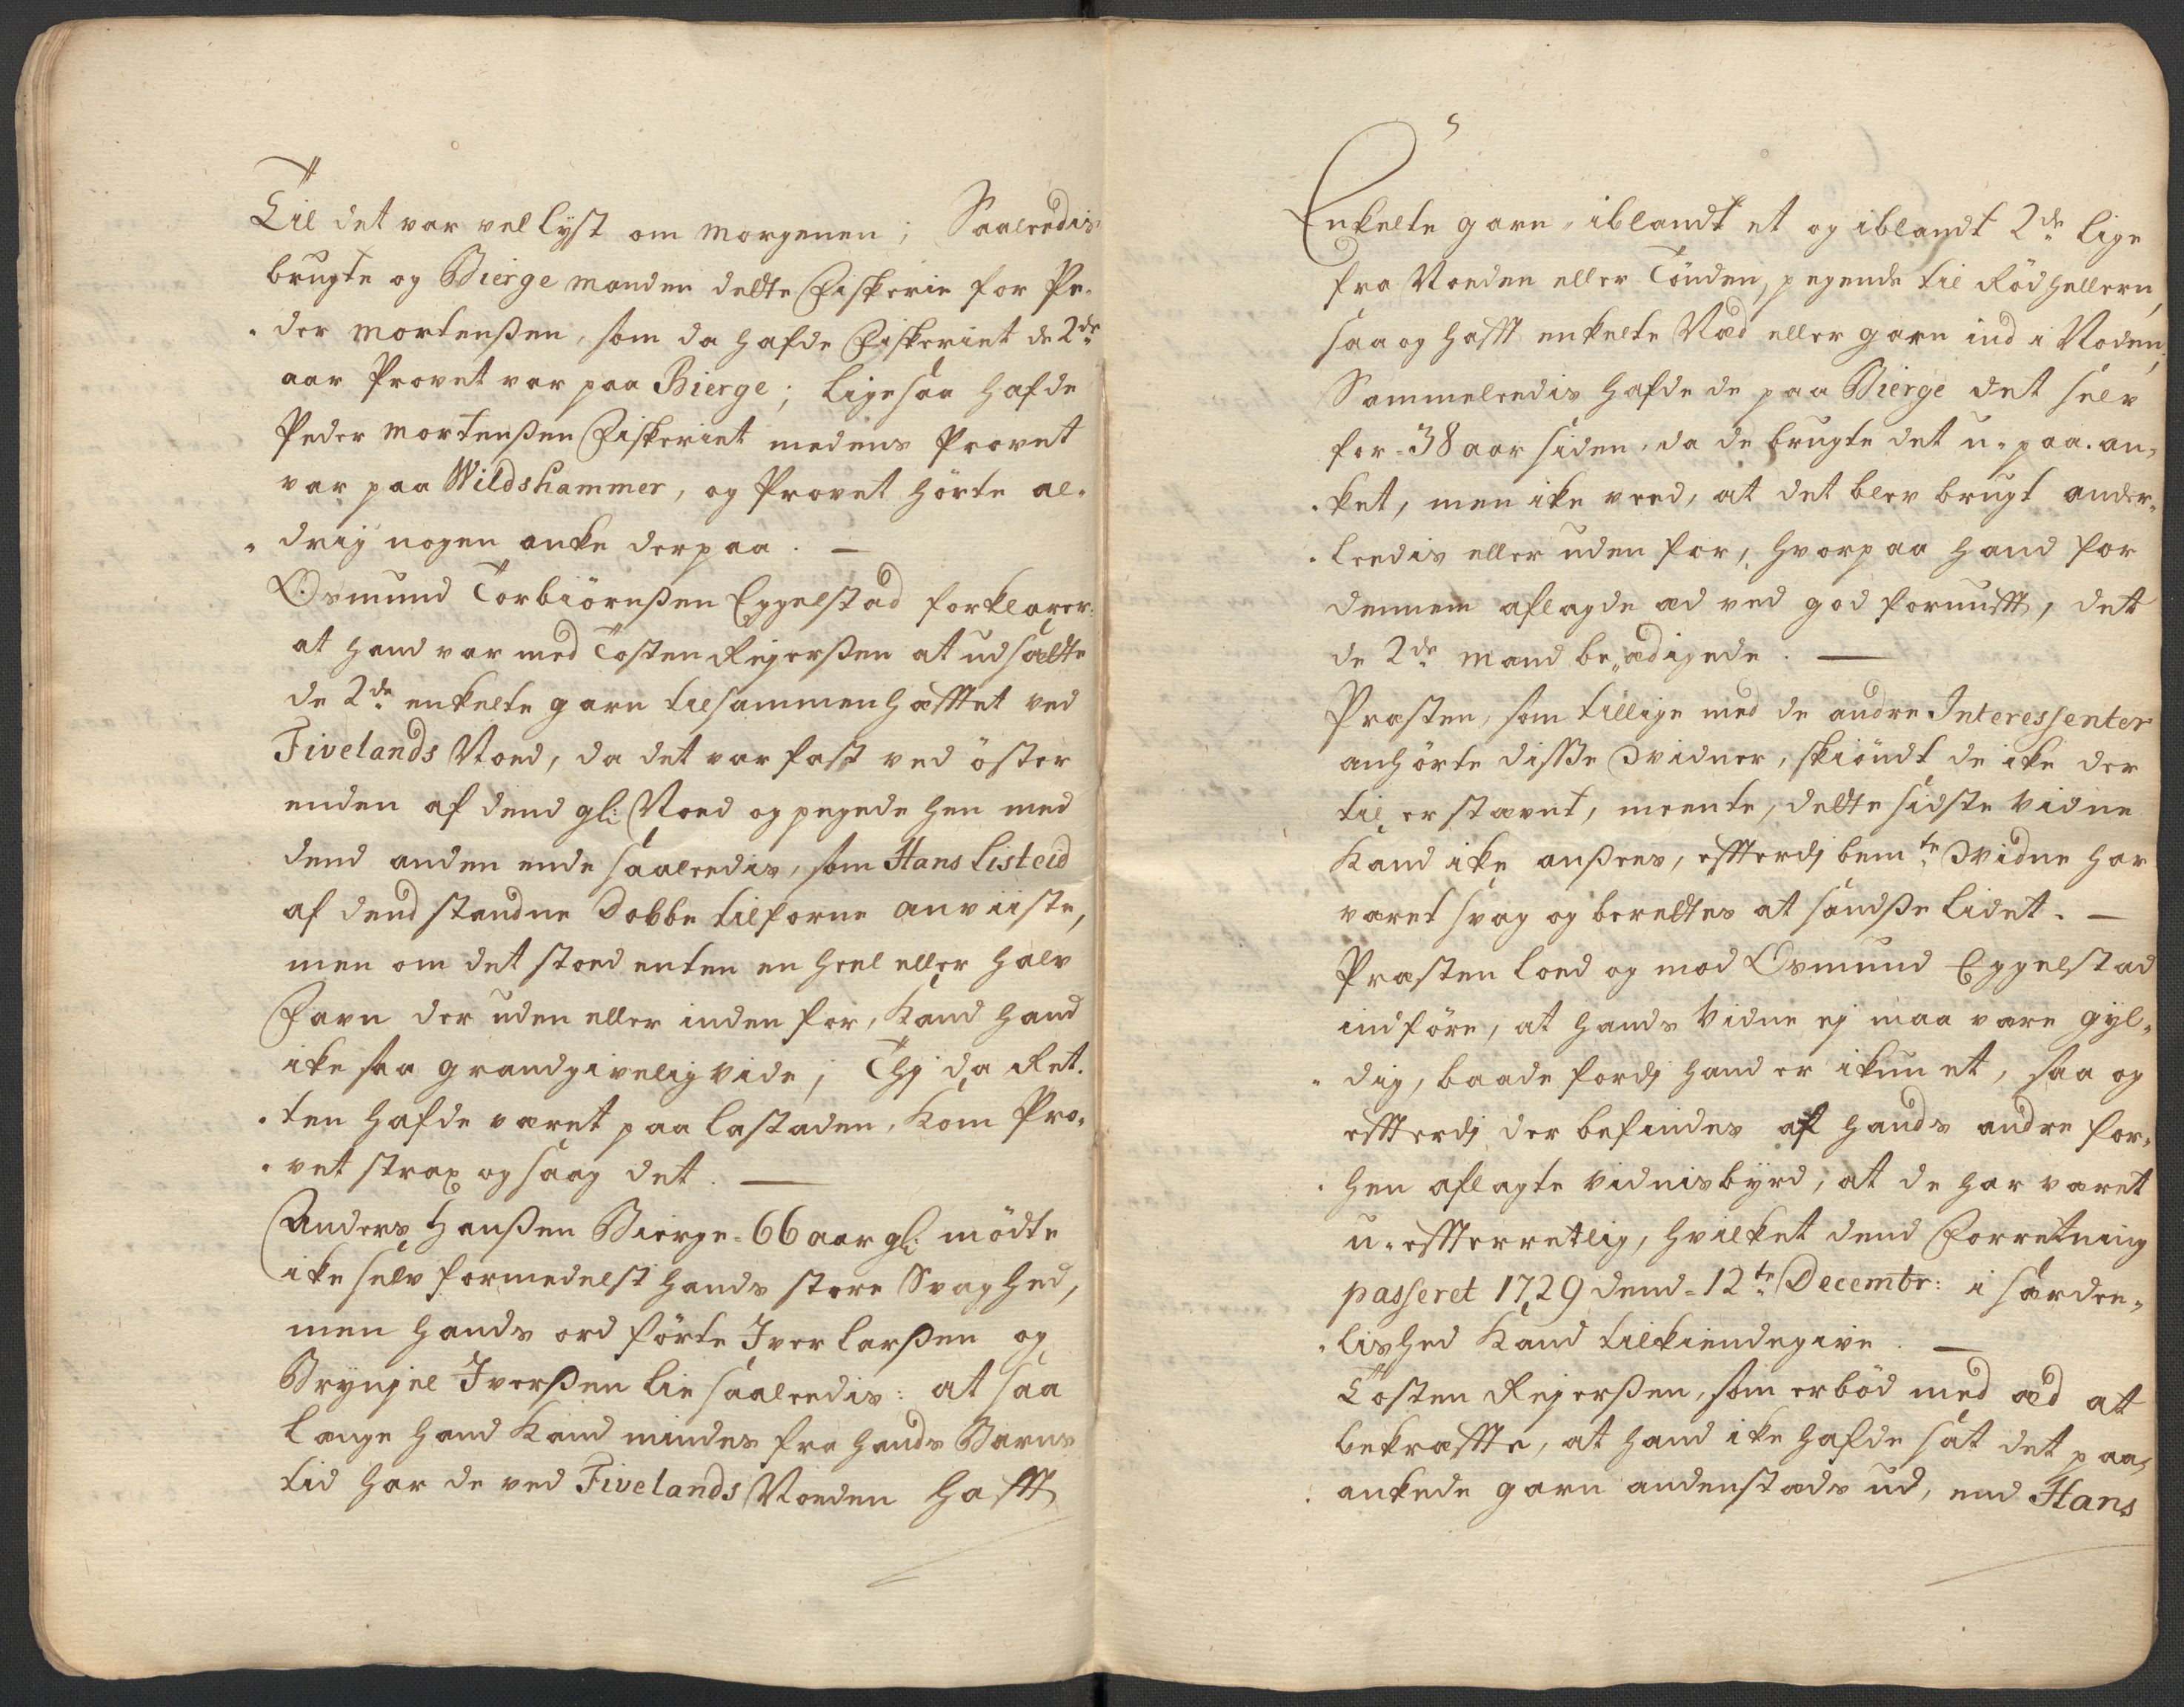 Til det var vel lyst om morgenen; Saaledis
brugte og Bierge manden dette Fiskerie for Pe-
der Mortenßen, som da hafde Fiskeriet de 2de
aar Provet var paa Bierge; ligesaa hafde
Peder Mortenßen Fiskeriet medens Provet
var paa Wildshammer, og Provet hörte al-
drig nogen anke derpaa. —
Osmund Torbiörnßen Eggelstad forklarer:
at hand var med Tosten Rejerßen at udsætte
de 2de enkelte garn tilsammenhæfftet ved
Fivelands Noed, da det var fast ved öster
enden af dend gl: Noed og pegede hen med
dend anden ende saaledis, som Hans Listeid
af dend standne Dobbe tilforne anviiste,
men om det stoed enten en heel eller halv
Favn der uden eller inden for, kand hand
ike saa grandgivelig vide; Thj da Ret-
ten hafde været paa Lastaden, kom Pro-
vet strax og saag det. —
Anders Hanßen Bierge - 66 aar gl: mödte
ike selv formedelst hands store Svaghed,
men hands ord förte Iver Larßen og
Brynjel Iverßen Lie saaledis: at saa
lenge hand kand mindes fra hands Barns
tid har de ved Fivelands Noeden hafft
Enkelte garn, iblandt et og iblandt 2de lige
fra Noeden eller Tönden, pegende til Rödhellern,
saa og hafft enkelte Næd eller garn ind i Noden;
Sammeledis hafde de paa Bierge det selv
for - 38 aar siden, da de brugte det u-paa-an-
ket, men ike veed, at det blev brugt ander-
ledis eller uden for, hvorpaa hand for
dennem aflagde æd ved god fornufft, det
de 2de mand be,,ædigede. —
Præsten, som tillige med de andre Interessenter
anhörte disse Vidner, skiöndt de ike der
til er stævnt, meente, dette sidste Vidne
kand ike anßees, effterdj bemte Vidne har
været svag og berettes at sandse lidet. —
Præsten loed og mod Osmund Eggelstad
indföre, at hands Vidne ej maa være gyl-
dig, baade fordj hand er ikun et, saa og
effterdj der befindes af hands andre for-
hen aflagte vidnisbyrd, at de har været
u-effterretlig, hvilket dend Forretning
passeret 1729 dend - 12te Decembr: i særdee-
lished kand tilkiendegive. —
Tosten Rejerßen, som erböd med æd at
bekræffte, at hand ike hafde sat det paa-
ankede garn andenstæds ud, end Hans